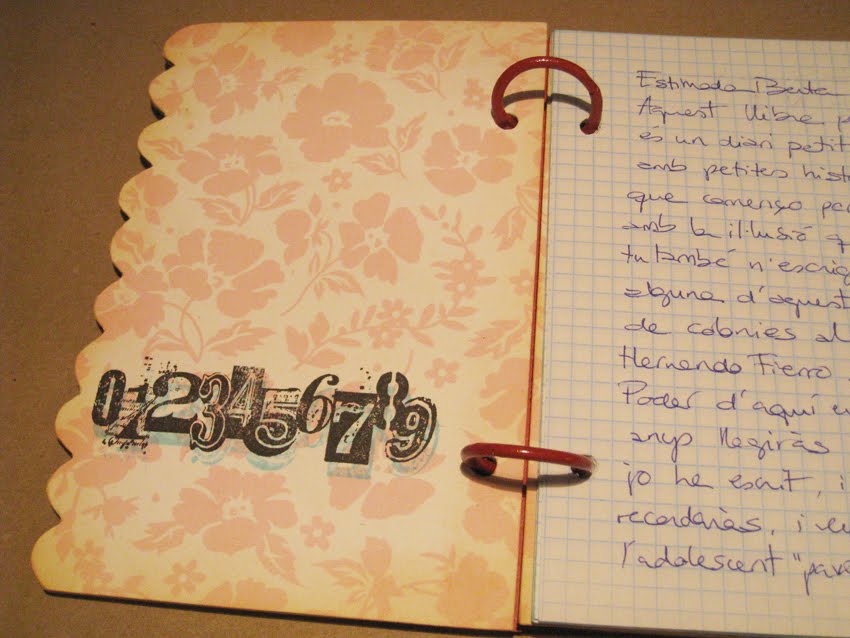 0123456789
Estimada Berta
Aquest llibre p
és un diari petit
amb petites hist
que començo pa
amb la il·lusió q
tu també n'escrig
alguna d'aquest
de colonies al
Hernando Fierro
Poder d'aquí u
anys llegiràs
jo he escrit, i
recordaràs, i
l'adolescent "pava